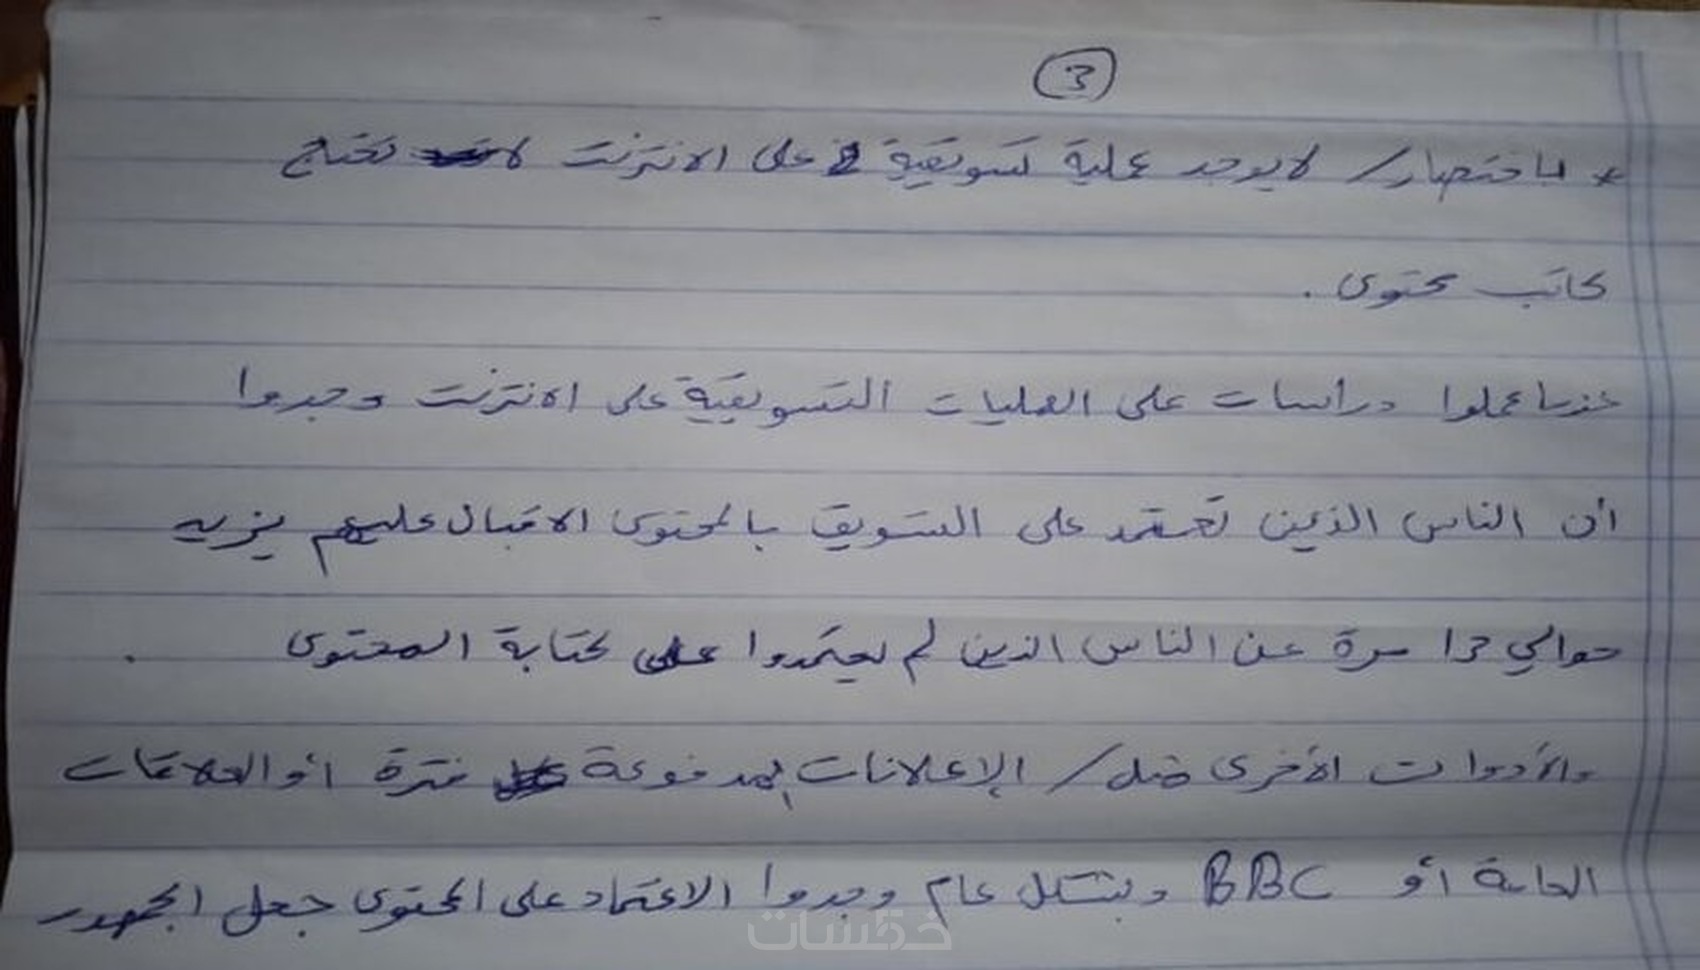 3
* باختصار/ لا يوجد عملية تسويقية على الانترنت لا تحتج
كاتب محتوى .
عندما عملوا دراسات على العمليات التسويقية على الانترنت وجدوا
أن الناس الذين تعتمد على التسويق بالمحتوى الاقبال عليهم يزيد
حوالي مرة عن الناس الذين لم يعتمدوا على كتابة المحتوى .
والأدوات الأخرى مثل/ الإعلانات المدفوعة فترة أو العلاقات
العامة أو BBC وبشكل عام وجدوا الاعتماد على المحتوى جعل الجمهور
خمسات